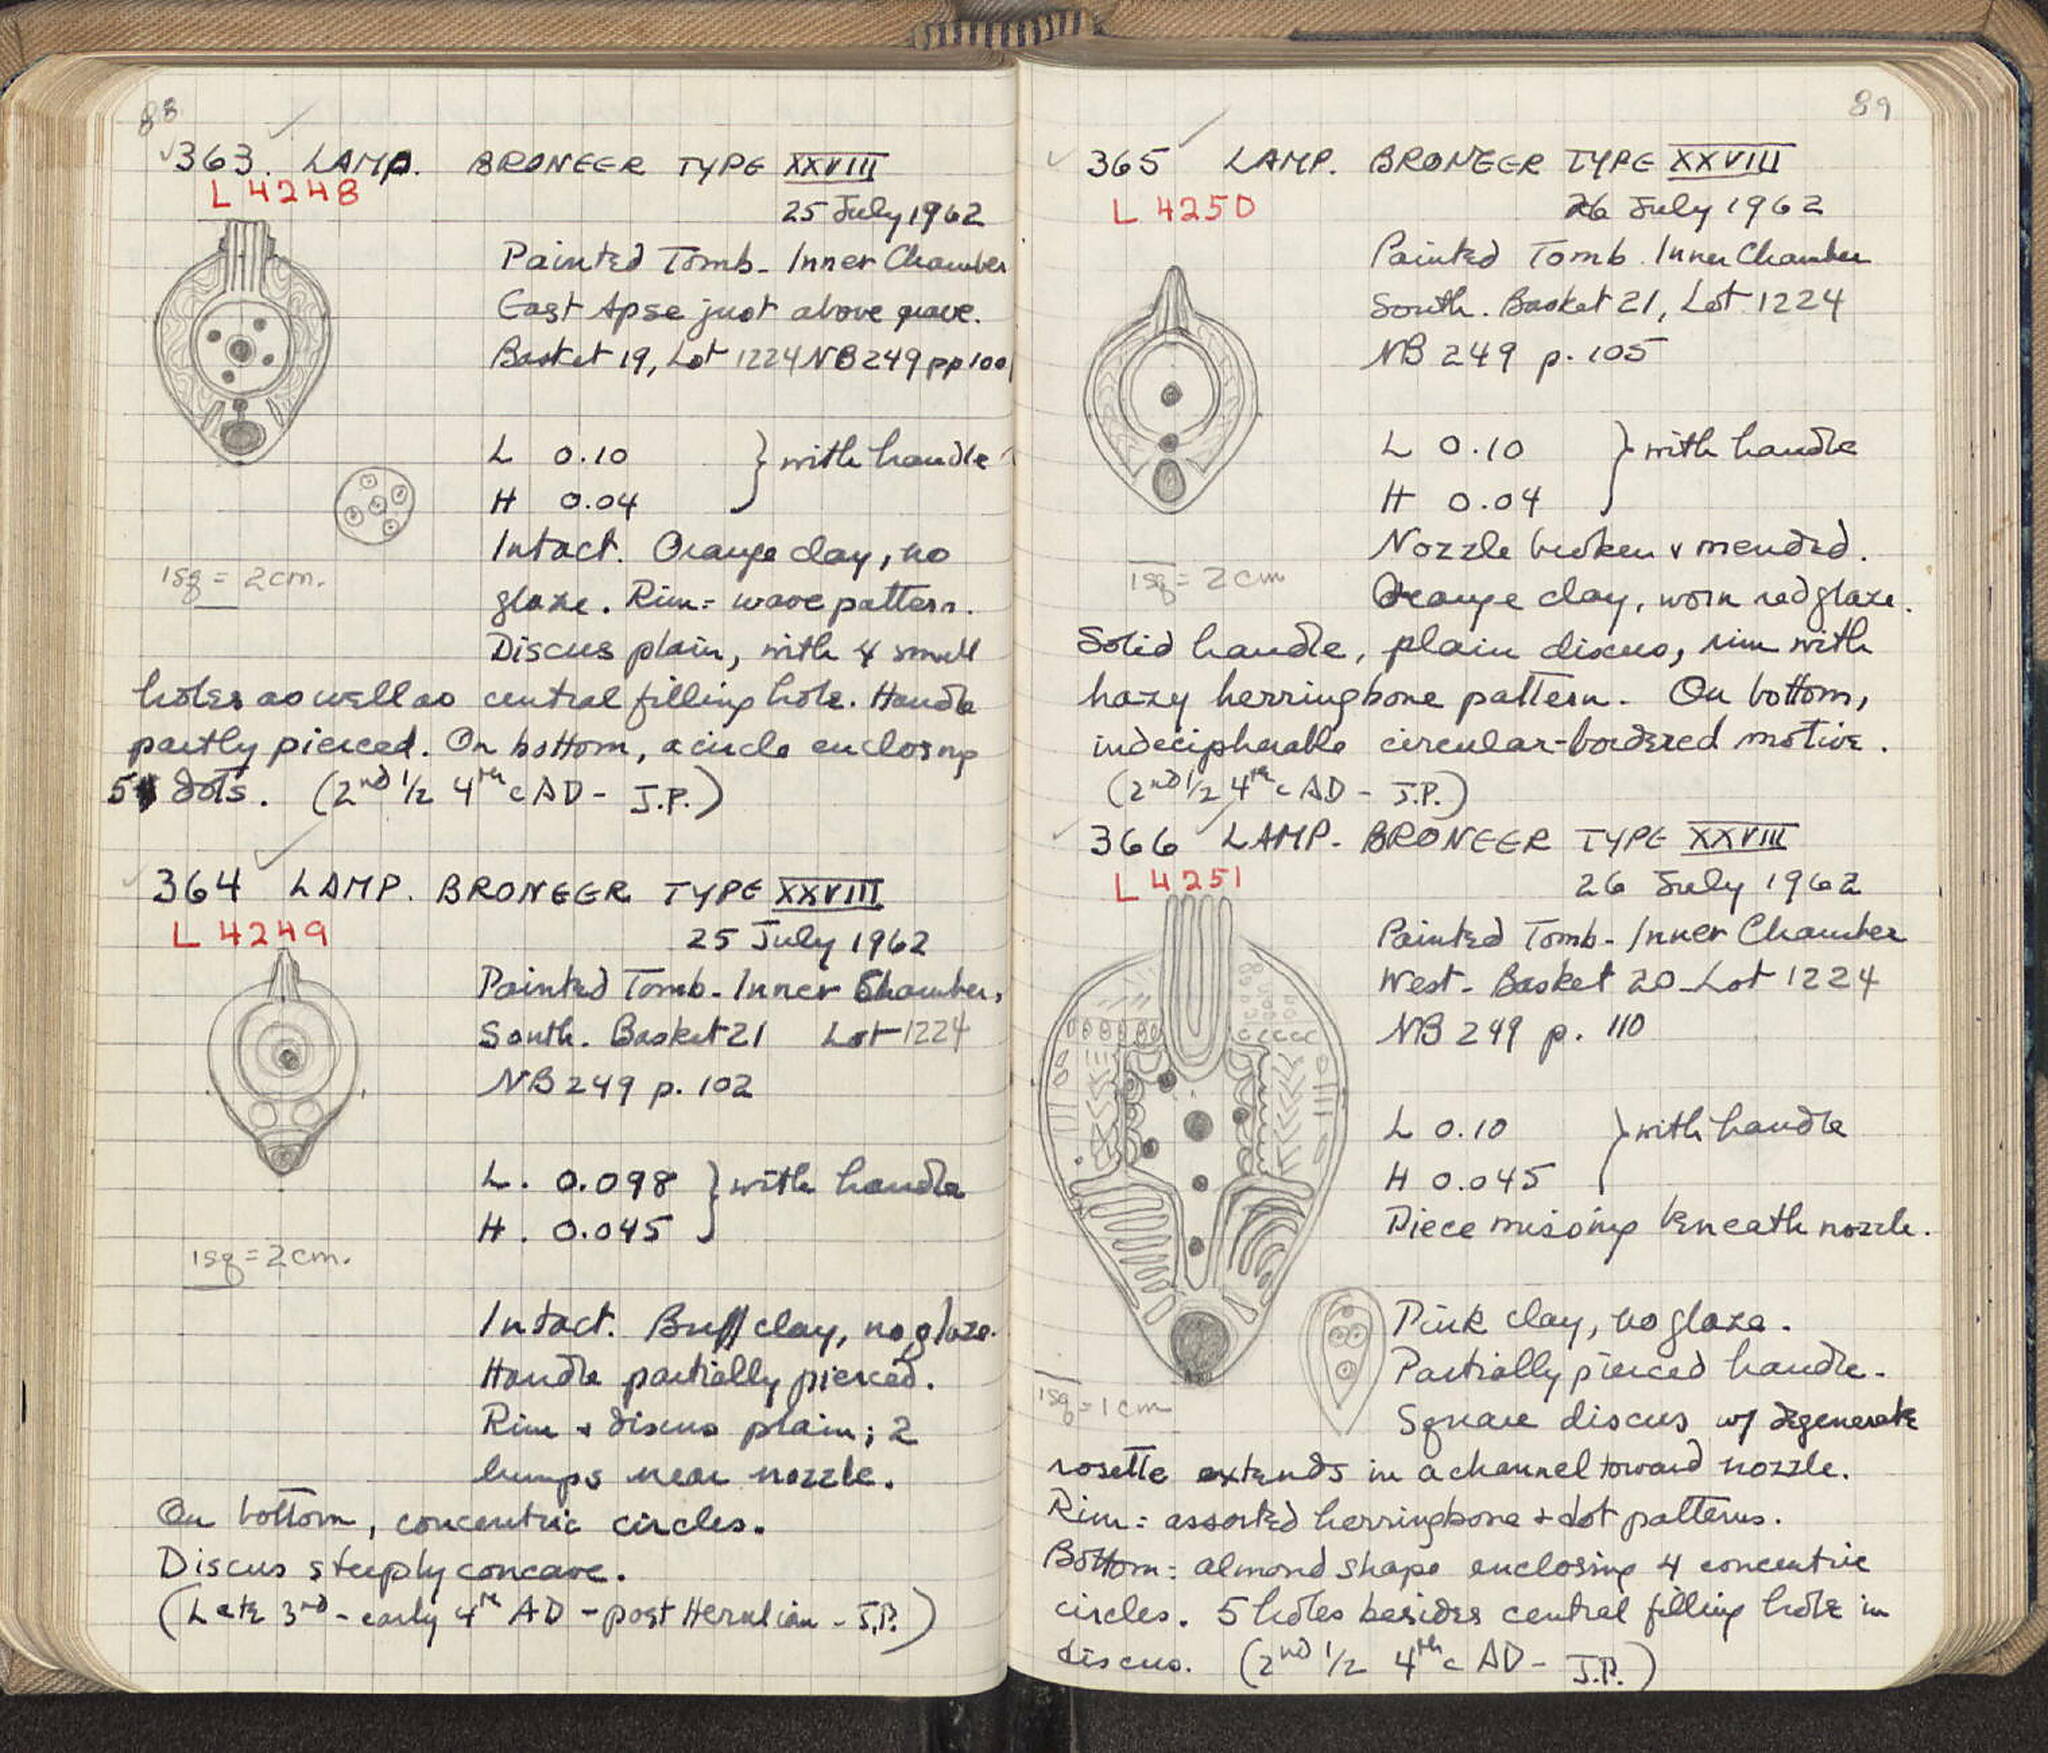 88
363. LAMP. BRONEER TYPE XXVIII
L 4248
25 July 1962
Painted Tomb - Inner Chamber
East Apse just above grave.
Basket 19, Lot 1224 NB 249 pp 100
L 0.10 } with handle
H 0.04
1sq = 2cm.
Intact. Orange clay, no
glaze. Rim = wave pattern.
Discus plain, with 4 small
holes as well as central filling hole. Handle
partly pierced. On bottom, a circle enclosing
5 dots. (2nd 1/2 4th c AD - J.P.)
364 LAMP. BRONEER TYPE XXVIII
L 4249
25 July 1962
Painted Tomb - Inner Chamber,
South. Basket 21 Lot 1224
NB 249 p. 102
L. 0.098 } with handle
H. 0.045
1sq = 2cm.
Intact. Buff clay, no glaze.
Handle partially pierced.
Rim + discus plain; 2
bumps near nozzle.
On bottom, concentric circles.
Discus steeply concave.
(Late 3rd - early 4th AD - post Herulian - J.P.)
89
365 LAMP. BRONEER TYPE XXVIII
L 4250
26 July 1962
Painted Tomb. Inner Chamber
South. Basket 21, Lot 1224
NB 249 p. 105
L 0.10 } with handle
H 0.04
1sq = 2cm
Nozzle broken & mended.
Orange clay, worn red glaze.
Solid handle, plain discus, rim with
hazy herringbone pattern. On bottom,
indecipherable circular-bordered motive.
(2nd 1/2 4th c AD - J.P.)
366 LAMP. BRONEER TYPE XXVIII
L 4251
26 July 1962
Painted Tomb - Inner Chamber
West - Basket 20 - Lot 1224
NB 249 p. 110
L 0.10 } with handle
H 0.045
Piece missing beneath nozzle.
Pink clay, no glaze.
Partially pierced handle.
1sq = 1cm
Square discus w/ degenerate
rosette extends in a channel toward nozzle.
Rim = assorted herringbone + dot patterns.
Bottom = almond shape enclosing 4 concentric
circles. 5 holes besides central filling hole in
discus. (2nd 1/2 4th c AD - J.P.)